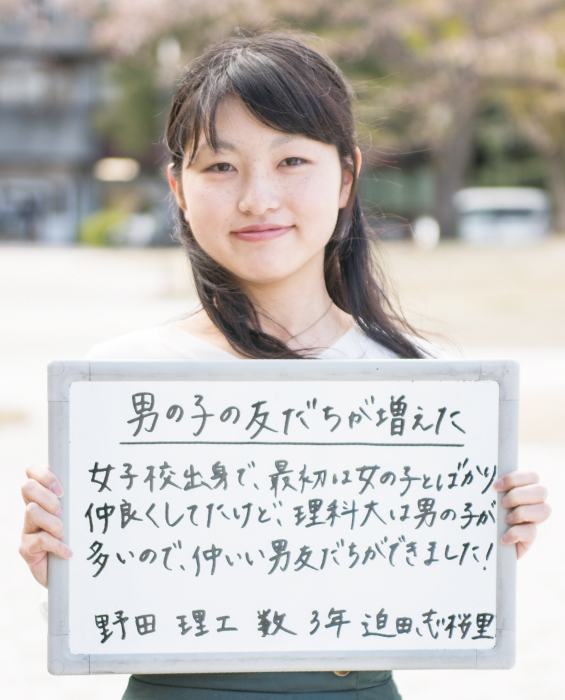 男の子の友だちが増えた
女子校出身で、最初は女の子とばかり
仲良くしてたけど、理科大は男の子が
多いので、仲いい男友だちができました！
野田 理工 数 3年 迫田志桜里